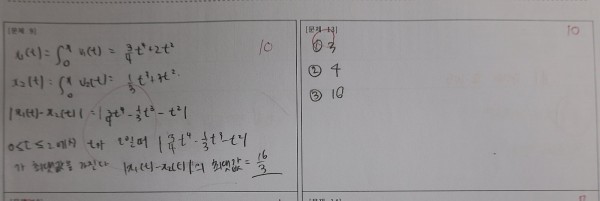 [문제 9]
x₁(t) = ∫₀ˣ v₁(t) = 3/4 t⁴ + 2t²
10
x₂(t) = ∫₀ˣ v₂(t) = 1/3 t³ + 3t².
|x₁(t) - x₂(t)| = |3/4 t⁴ - 1/3 t³ - t²|
0≤t≤2에서 t가 2일때 |3/4 t⁴ - 1/3 t³ - t²|
가 최댓값을 가진다 |x₁(t) - x₂(t)|의 최댓값 = 16/3
10
① 3
② 4
③ 16